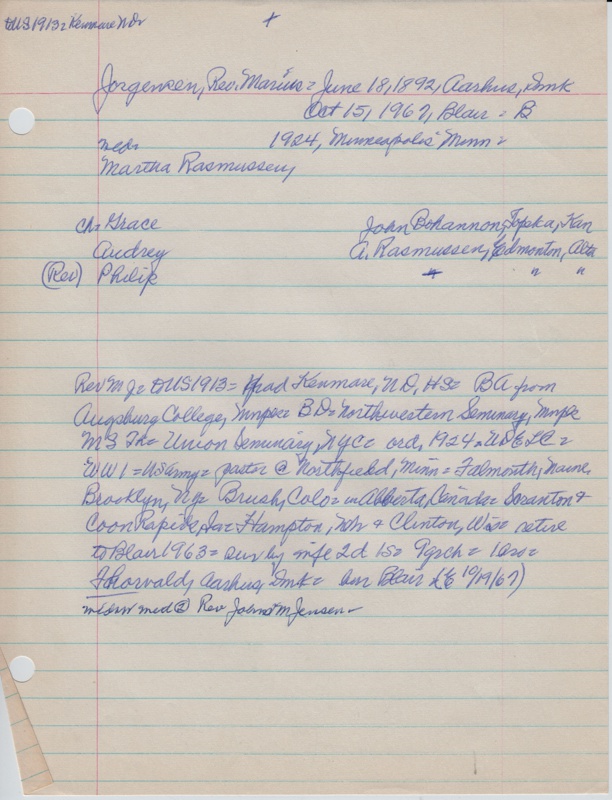 to US 1913 = Kenmare ND
Jorgensen, Rev. Marius = June 18, 1892, Aarhus, Dmk
Oct 15, 1967, Blair = B
med. 1924, Minneapolis Minn =
Martha Rasmussen,
ch = Grace John Bohannon, Topeka, Kan
Audrey A. Rasmussen, Edmonton, Alta
(Rev) Philip " " "
Rev MJ = to US 1913 = grad Kenmare, ND, HS = BA from
Augsburg College, Mnpe = BD = Northwestern Seminary, Mnpe
MS Th = Union Seminary, NYC = ord, 1924 = UDELC =
WW 1 = US Army = pastor @ Northfield, Minn = Falmouth, Maine
Brooklyn, Ny = Brush, Colo = in Alberta, Canada = Soranton &
Coon Rapids, Ia = Hampton, Nbr & Clinton, Wis = retire
to Blair 1963 = sur by wife 2d 1s = 9grch = 1 bro =
Thorvald, Aarhus, Dmk = bur Blair (E 10/19/67)
med @ Rev John M Jensen